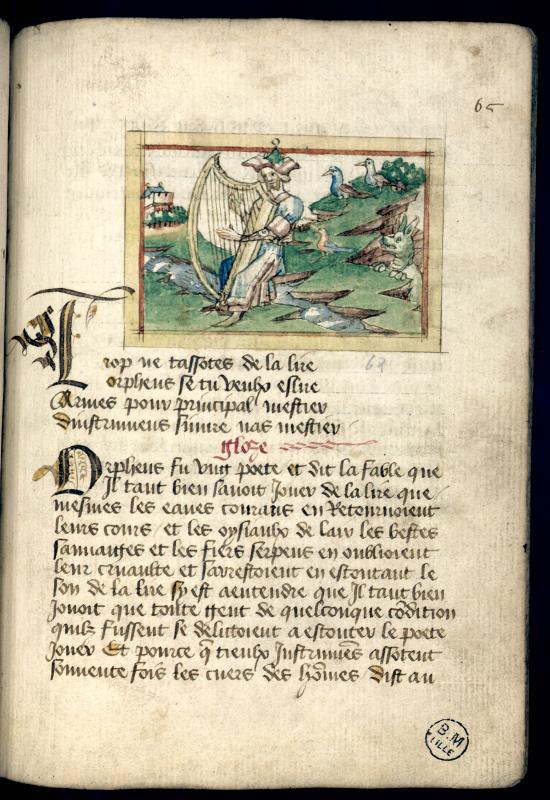 65
Trop ne tassotes de la lire
orpheus se tu veulx eslire
Armes pour principal mestier
dinstrumens suiure nas mestier
62
gloze
Orpheus fu vng poete et dit la fable que
Jl taut bien sauoit Jouer de la lire que
mesmes les eaues courans en Retournoient
leurs cours / et les oysiaulx de lair les bestes
sauuaiges et les fiers serpens en oublioient
leur cruaulte et sarrestoient en escoutant le
son de la lire sy est aentendre que Jl taut bien
Jouoit que toute gent de quelconque cõdition
quilz fussent se delittoient a escouter le poete
Jouer Et pource q̃ tieulx Jnstrumẽs assotent
souuente fois les cuers des hõmes / dist au
B.M
LILLE